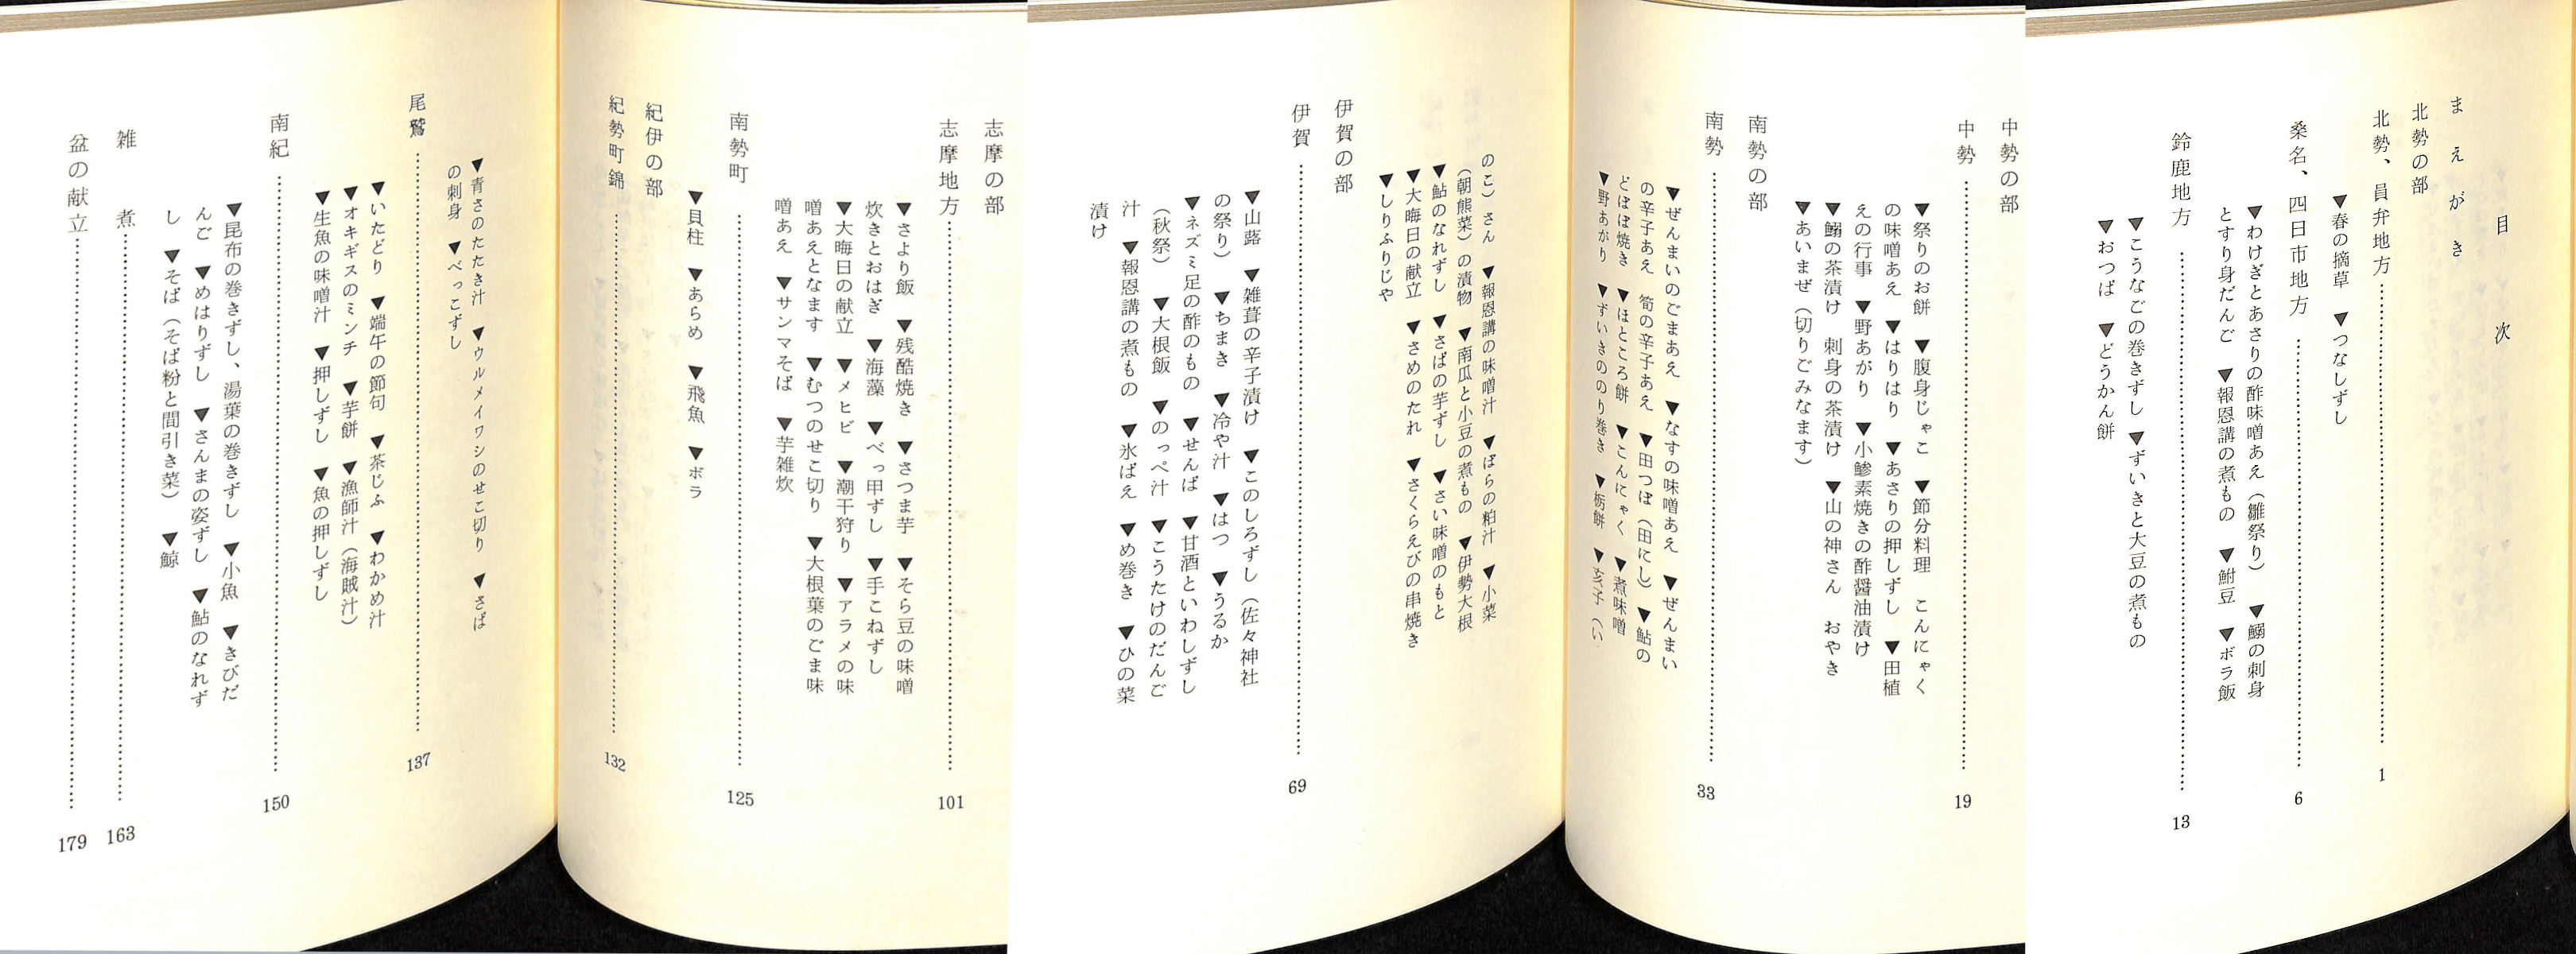 目次
まえがき
北勢の部
北勢、員弁地方……………1
▼春の摘草　▼つなしずし
桑名、四日市地方……………6
▼わけぎとあさりの酢味噌あえ（雛祭り）　▼鰯の刺身
とすり身だんご　▼報恩講の煮もの　▼鮒豆　▼ボラ飯
鈴鹿地方……………13
▼こうなごの巻きずし　▼ずいきと大豆の煮もの
▼おつぱ　▼どうかん餅
中勢の部
中勢……………19
▼祭りのお餅　▼腹身じゃこ　▼節分料理　こんにゃく
の味噌あえ　▼はりはり　▼あさりの押しずし　▼田植
えの行事　▼野あがり　▼小鯵素焼きの酢醤油漬け
▼鰯の茶漬け　刺身の茶漬け　▼山の神さん　おやき
▼あいまぜ（切りごみなます）
南勢の部
南勢……………33
▼ぜんまいのごまあえ　▼なすの味噌あえ　▼ぜんまい
の辛子あえ　筍の辛子あえ　▼田つぼ（田にし）　▼鮎の
どぼぼ焼き　▼ほところ餅　▼こんにゃく　▼煮味噌
▼野あがり　▼ずいきののり巻き　▼栃餅　▼亥子（い
のこ）さん　▼報恩講の味噌汁　▼ぼらの粕汁　▼小菜
（朝熊菜）の漬物　▼南瓜と小豆の煮もの　▼伊勢大根
▼鮎のなれずし　▼さばの芋ずし　▼さい味噌のもと
▼大晦日の献立　▼さめのたれ　▼さくらえびの串焼き
▼しりふりじゃ
伊賀の部
伊賀……………69
▼山蕗　▼雑葺の辛子漬け　▼このしろずし（佐々神社
の祭り）　▼ちまき　▼冷や汁　▼はつ　▼うるか
▼ネズミ足の酢のもの　▼せんば　▼甘酒といわしずし
（秋祭）　▼大根飯　▼のっぺ汁　▼こうたけのだんご
汁　▼報恩講の煮もの　▼氷ばえ　▼め巻き　▼ひの菜
漬け
志摩の部
志摩地方……………101
▼さより飯　▼残酷焼き　▼さつま芋　▼そら豆の味噌
炊きとおはぎ　▼海藻　▼べっ甲ずし　▼手こねずし
▼大晦日の献立　▼メヒビ　▼潮干狩り　▼アラメの味
噌あえとなます　▼むつのせこ切り　▼大根葉のごま味
噌あえ　▼サンマそば　▼芋雑炊
南勢町……………125
▼貝柱　▼あらめ　▼飛魚　▼ボラ
紀伊の部
紀勢町錦……………132
▼青さのたたき汁　▼ウルメイワシのせこ切り　▼さば
の刺身　▼べっこずし
尾鷲……………137
▼いたどり　▼端午の節句　▼茶じふ　▼わかめ汁
▼オキギスのミンチ　▼芋餅　▼漁師汁（海賊汁）
▼生魚の味噌汁　▼押しずし　▼魚の押しずし
南紀……………150
▼昆布の巻きずし、湯葉の巻きずし　▼小魚　▼きびだ
んご　▼めはりずし　▼さんまの姿ずし　▼鮎のなれず
し　▼そば（そば粉と間引き菜）　▼鯨
雑煮……………163
盆の献立……………179